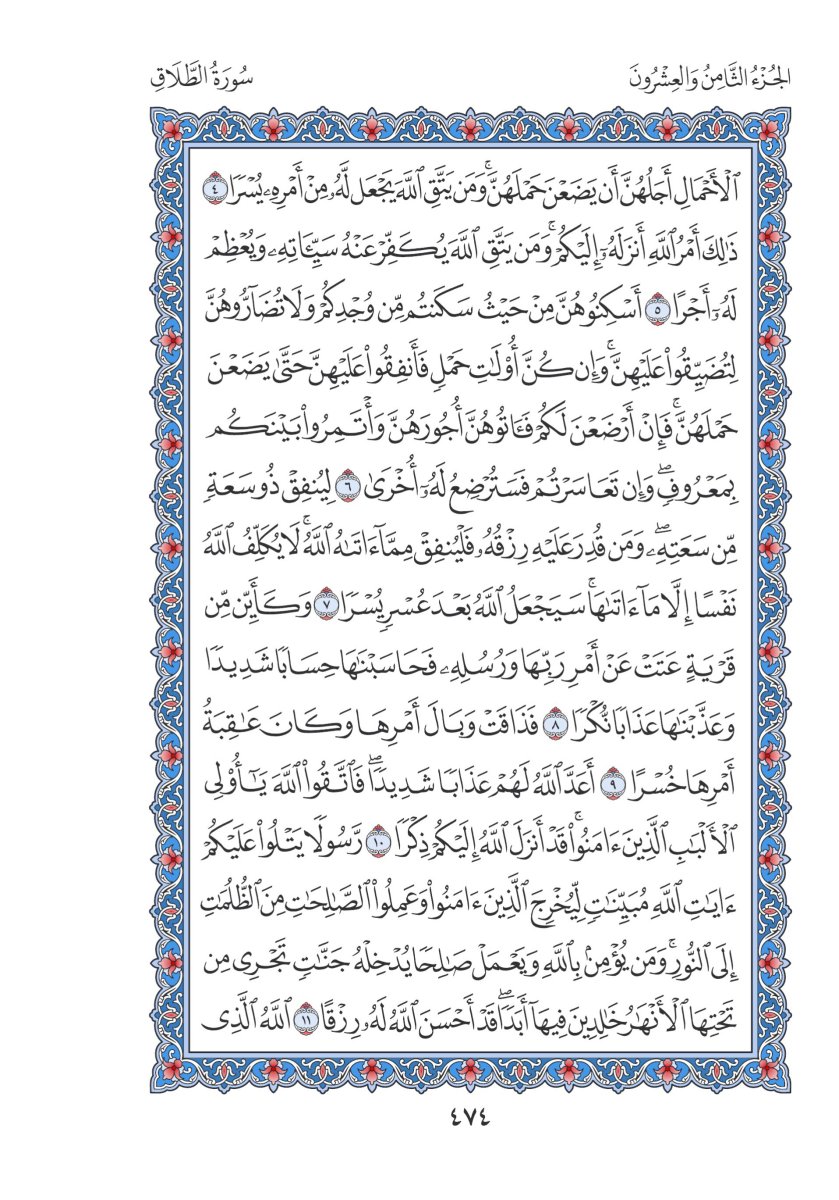 الجُزْءُ الثَّامِنُ وَالعِشْرُونَ
سُورَةُ الطَّلَاقِ
ٱلْأَحْمَالِ أَجَلُهُنَّ أَن يَضَعْنَ حَمْلَهُنَّۚ وَمَن يَتَّقِ ٱللَّهَ يَجْعَل لَّهُۥ مِنْ أَمْرِهِۦ يُسْرًا ٤
ذَٰلِكَ أَمْرُ ٱللَّهِ أَنزَلَهُۥٓ إِلَيْكُمْۚ وَمَن يَتَّقِ ٱللَّهَ يُكَفِّرْ عَنْهُ سَيِّـَٔاتِهِۦ وَيُعْظِمْ
لَهُۥٓ أَجْرًا ٥ أَسْكِنُوهُنَّ مِنْ حَيْثُ سَكَنتُم مِّن وُجْدِكُمْ وَلَا تُضَآرُّوهُنَّ
لِتُضَيِّقُوا۟ عَلَيْهِنَّۚ وَإِن كُنَّ أُو۟لَٰتِ حَمْلٍ فَأَنفِقُوا۟ عَلَيْهِنَّ حَتَّىٰ يَضَعْنَ
حَمْلَهُنَّۚ فَإِنْ أَرْضَعْنَ لَكُمْ فَـَٔاتُوهُنَّ أُجُورَهُنَّ وَأْتَمِرُوا۟ بَيْنَكُم
بِمَعْرُوفٍۖ وَإِن تَعَاسَرْتُمْ فَسَتُرْضِعُ لَهُۥٓ أُخْرَىٰ ٦ لِيُنفِقْ ذُو سَعَةٍ
مِّن سَعَتِهِۦۖ وَمَن قُدِرَ عَلَيْهِ رِزْقُهُۥ فَلْيُنفِقْ مِمَّآ ءَاتَىٰهُ ٱللَّهُۚ لَا يُكَلِّفُ ٱللَّهُ
نَفْسًا إِلَّا مَآ ءَاتَىٰهَاۚ سَيَجْعَلُ ٱللَّهُ بَعْدَ عُسْرٍ يُسْرًا ٧ وَكَأَيِّن مِّن
قَرْيَةٍ عَتَتْ عَنْ أَمْرِ رَبِّهَا وَرُسُلِهِۦ فَحَاسَبْنَٰهَا حِسَابًا شَدِيدًا
وَعَذَّبْنَٰهَا عَذَابًا نُّكْرًا ٨ فَذَاقَتْ وَبَالَ أَمْرِهَا وَكَانَ عَٰقِبَةُ
أَمْرِهَا خُسْرًا ٩ أَعَدَّ ٱللَّهُ لَهُمْ عَذَابًا شَدِيدًاۖ فَٱتَّقُوا۟ ٱللَّهَ يَٰٓأُو۟لِى
ٱلْأَلْبَٰبِ ٱلَّذِينَ ءَامَنُوا۟ۚ قَدْ أَنزَلَ ٱللَّهُ إِلَيْكُمْ ذِكْرًا ١٠ رَّسُولًا يَتْلُوا۟ عَلَيْكُمْ
ءَايَٰتِ ٱللَّهِ مُبَيِّنَٰتٍ لِّيُخْرِجَ ٱلَّذِينَ ءَامَنُوا۟ وَعَمِلُوا۟ ٱلصَّٰلِحَٰتِ مِنَ ٱلظُّلُمَٰتِ
إِلَى ٱلنُّورِۚ وَمَن يُؤْمِنۢ بِٱللَّهِ وَيَعْمَلْ صَٰلِحًا يُدْخِلْهُ جَنَّٰتٍ تَجْرِى مِن
تَحْتِهَا ٱلْأَنْهَٰرُ خَٰلِدِينَ فِيهَآ أَبَدًاۖ قَدْ أَحْسَنَ ٱللَّهُ لَهُۥ رِزْقًا ١١ ٱللَّهُ ٱلَّذِى
٤٧٤